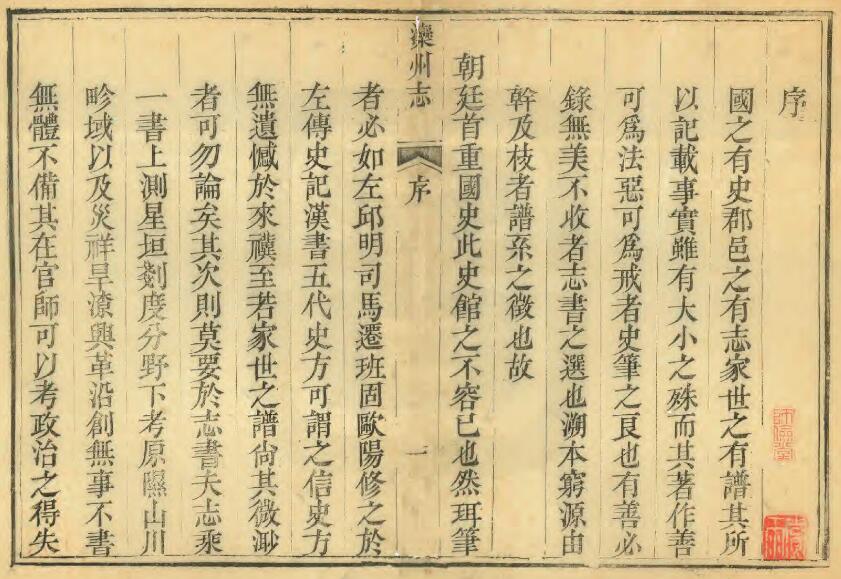 序
國之有史郡邑之有志家世之有譜其所
以記載事實雖有大小之殊而其著作善
可爲法惡可爲戒者史筆之良也有善必
錄無美不收者志書之選也溯本窮源由
幹及枝者譜系之徵也故
朝廷首重國史此史館之不容已也然珥筆
灤州志 序 一
者必如左邱明司馬遷班固歐陽修之於
左傳史記漢書五代史方可謂之信史方
無遺憾於來禩至若家世之譜尙其微渺
者可勿論矣其次則莫要於志書夫志乘
一書上測星垣剗度分野下考原隰山川
畛域以及災祥旱潦興革沿創無事不書
無體不備其在官師可以考政治之得失